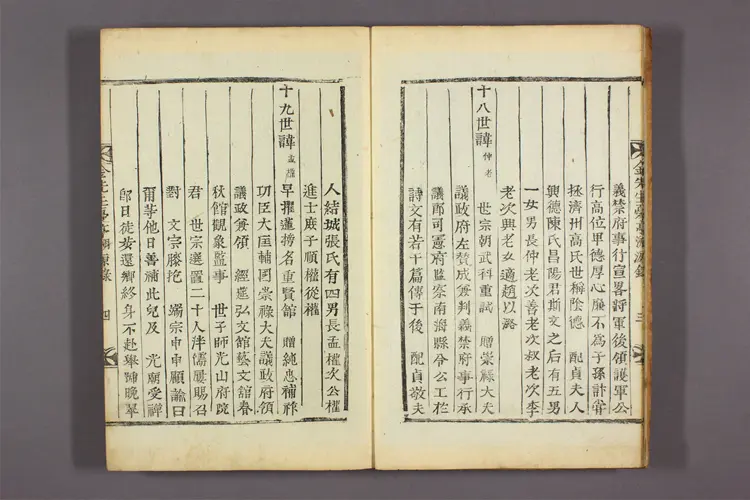 義禁府事行宣畧將軍後領護軍公
行高位卑德厚心廉不為子孫計嘗
拯濟州高氏世稱陰德 配貞夫人
興德陳氏昌陽君斯文之后有五男
一女男長仲老次善老次叔老次季
老次興老女適趙以
十八世諱仲老 世宗朝武科重試 贈崇祿大夫
議政府左贊成兼判義禁府事行承
議郎司憲府監察南海縣令公工於
詩文有若干篇傳于後 配貞敬夫
三
人結城張氏有四男長孟權次公權
進士庶子順權從權
十九世諱孟權 早擢蓮榜名重賢館 贈純忠補祚
功臣大匡輔國崇祿大夫議政府領
議政兼領 經筵弘文館藝文館春
秋館觀象監事 世子師光山府院
君 世宗選置二十人泮儒屢賜召
對 文宗勝抱 端宗申申顧諭曰
爾等他日善補此兒及 光廟受禪
即日徒步還鄉終身不赴舉師晚翠
四